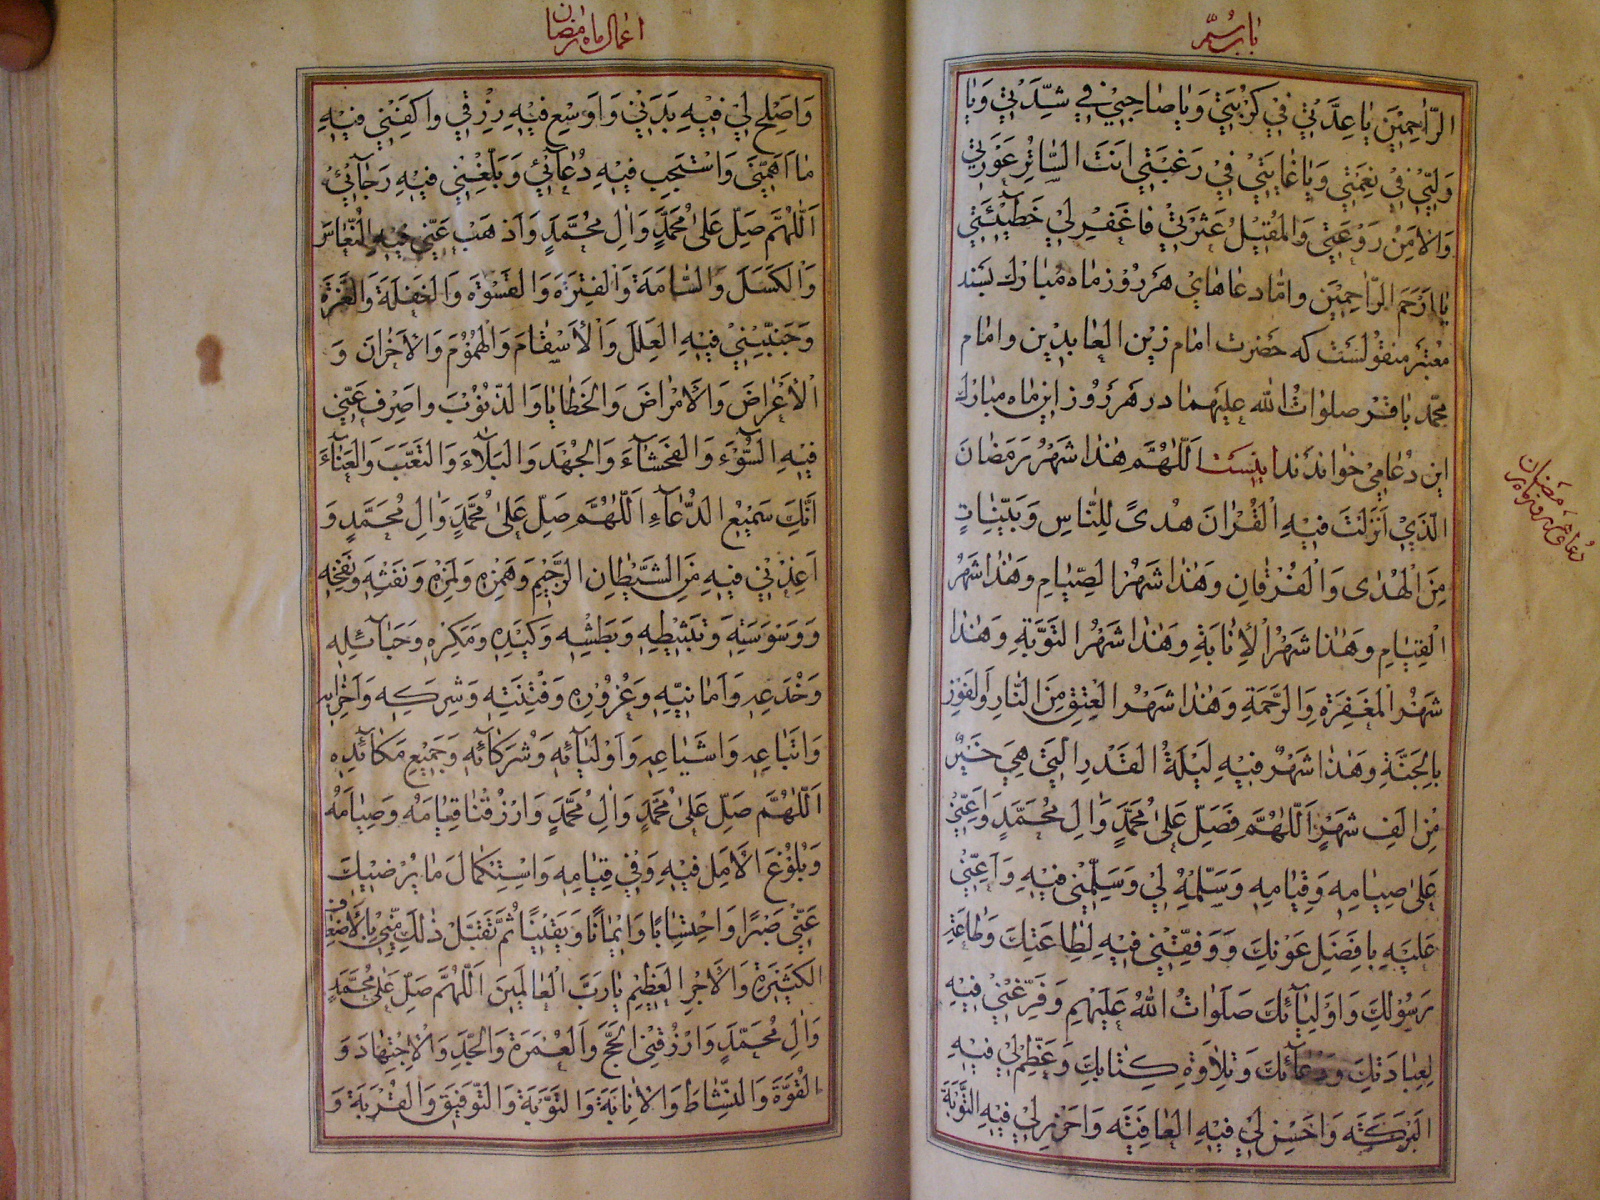 باب سیم
الرّٰاحِمِيْنَ يٰا عِدَّتِيْ فِيْ كُرْبَتِيْ وَيٰا صٰاحِبِيْ فِيْ شِدَّتِيْ وَيٰا
وَلِيّيْ فِيْ نِعْمَتِيْ وَيٰا غٰايَتِيْ فِيْ رَغْبَتِيْ اَنْتَ السّٰاتِرُ عَوْرَتِيْ
وَالْاٰمِنُ رَوْعَتِيْ وَالْمُقِيْلُ عَثْرَتِيْ فَاغْفِرْ لِيْ خَطِيْئَتِيْ
يٰا اَرْحَمَ الرّٰاحِمِيْنَ وامّا دعاهای هر روز ماه مبارك بسند
معتبر منقولست که حضرت امام زین العابدین و امام
محمّد باقر صلوات الله علیهما در هر روز این ماه مبارك
این دعا می خواندند اینست اَللّٰهُمَّ هٰذٰا شَهْرُ رَمَضٰانَ
الَّذِيْ اَنْزَلْتَ فِيْهِ الْقُرْاٰنَ هُدًى لِلنّٰاسِ وَبَيِّنٰاتٍ
مِنَ الْهُدٰى وَالْفُرْقٰانِ وَهٰذٰا شَهْرُ الصِّيٰامِ وَهٰذٰا شَهْرُ
الْقِيٰامِ وَهٰذٰا شَهْرُ الْاِنٰابَةِ وَهٰذٰا شَهْرُ التَّوْبَةِ وَهٰذٰا
شَهْرُ الْمَغْفِرَةِ وَالرَّحْمَةِ وَهٰذٰا شَهْرُ الْعِتْقِ مِنَ النّٰارِ وَالْفَوْزِ
بِالْجَنَّةِ وَهٰذٰا شَهْرٌ فِيْهِ لَيْلَةُ الْقَدْرِ الَّتِيْ هِيَ خَيْرٌ
مِنْ اَلْفِ شَهْرٍ اَللّٰهُمَّ فَصَلِّ عَلىٰ مُحَمَّدٍ وَاٰلِ مُحَمَّدٍ وَاَعِنِّيْ
عَلىٰ صِيٰامِهِ وَقِيٰامِهِ وَسَلِّمْهُ لِيْ وَسَلِّمْنِيْ فِيْهِ وَاَعِنِّيْ
عَلَيْهِ بِاَفْضَلِ عَوْنِكَ وَوَفِّقْنِيْ فِيْهِ لِطٰاعَتِكَ وَطٰاعَةِ
رَسُوْلِكَ وَاَوْلِيٰآئِكَ صَلَوٰاتُ اللّٰهِ عَلَيْهِمْ وَفَرِّغْنِيْ فِيْهِ
لِعِبٰادَتِكَ وَدُعٰآئِكَ وَتِلٰاوَةِ كِتٰابِكَ وَعَظِّمْ لِيْ فِيْهِ
الْبَرَكَةَ وَاَحْسِنْ لِيْ فِيْهِ الْعٰافِيَةَ وَاَحْرِزْ لِيْ فِيْهِ التَّوْبَةَ
اعمال ماه رمضان
وَاَصْلِحْ لِيْ فِيْهِ بَدَنِيْ وَاَوْسِعْ فِيْهِ رِزْقِيْ وَاكْفِنِيْ فِيْهِ
مٰا اَهَمَّنِيْ وَاسْتَجِبْ فِيْهِ دُعٰآئِيْ وَبَلِّغْنِيْ فِيْهِ رَجٰآئِيْ
اَللّٰهُمَّ صَلِّ عَلىٰ مُحَمَّدٍ وَاٰلِ مُحَمَّدٍ وَاَذْهِبْ عَنِّي فِيْهِ النُّعٰاسَ
وَالْكَسَلَ وَالسَّامَةَ وَالْفَتْرَةَ وَالْقَسْوَةَ وَالْغَفْلَةَ وَالْغِرَّةَ
وَجَنِّبْنِيْ فِيْهِ الْعِلَلَ وَالْاَسْقٰامَ وَالْهُمُوْمَ وَالْاَحْزٰانَ وَ
الْاَعْرٰاضَ وَالْاَمْرٰاضَ وَالْخَطٰايٰا وَالذُّنُوْبَ وَاصْرِفْ عَنِّي
فِيْهِ السُّوْءَ وَالْفَحْشٰآءَ وَالْجَهْدَ وَالْبَلٰآءَ وَالتَّعَبَ وَالْعَنٰآءَ
اِنَّكَ سَمِيْعُ الدُّعٰآءِ اَللّٰهُمَّ صَلِّ عَلىٰ مُحَمَّدٍ وَاٰلِ مُحَمَّدٍ وَ
اَعِذْنِيْ فِيْهِ مِنَ الشَّيْطٰانِ الرَّجِيْمِ وَهَمْزِهِ وَلَمْزِهِ وَنَفْثِهِ وَنَفْخِهِ
وَوَسْوَسَتِهِ وَتَثْبِيْطِهِ وَبَطْشِهِ وَكَيْدِهِ وَمَكْرِهِ وَحَبٰآئِلِهِ
وَخُدَعِهِ وَاَمٰانِيِّهِ وَغُرُوْرِهِ وَفِتْنَتِهِ وَشَرَكِهِ وَاَحْزٰابِهِ
وَاَتْبٰاعِهِ وَاَشْيٰاعِهِ وَاَوْلِيٰآئِهِ وَشُرَكٰآئِهِ وَجَمِيْعِ مَكٰآئِدِهِ
اَللّٰهُمَّ صَلِّ عَلىٰ مُحَمَّدٍ وَاٰلِ مُحَمَّدٍ وَارْزُقْنٰا قِيٰامَهُ وَصِيٰامَهُ
وَبُلُوْغَ الْاَمَلِ فِيْهِ وَفِيْ قِيٰامِهِ وَاسْتِكْمٰالَ مٰا يُرْضِيْكَ
عَنِّيْ صَبْرًا وَاحْتِسٰابًا وَاِيْمٰانًا وَيَقِيْنًا ثُمَّ تَقَبَّلْ ذٰلِكَ مِنِّيْ بِالْاَضْعٰافِ
الْكَثِيْرَةِ وَالْاَجْرِ الْعَظِيْمِ يٰا رَبَّ الْعٰالَمِيْنَ اَللّٰهُمَّ صَلِّ عَلىٰ مُحَمَّدٍ
وَاٰلِ مُحَمَّدٍ وَارْزُقْنِيْ الْحَجَّ وَالْعُمْرَةَ وَالْجِدَّ وَالْاِجْتِهٰادَ وَ
الْقُوَّةَ وَالنَّشٰاطَ وَالْاِنٰابَةَ وَالتَّوْبَةَ وَالتَّوْفِيْقَ وَالْقُرْبَةَ وَ